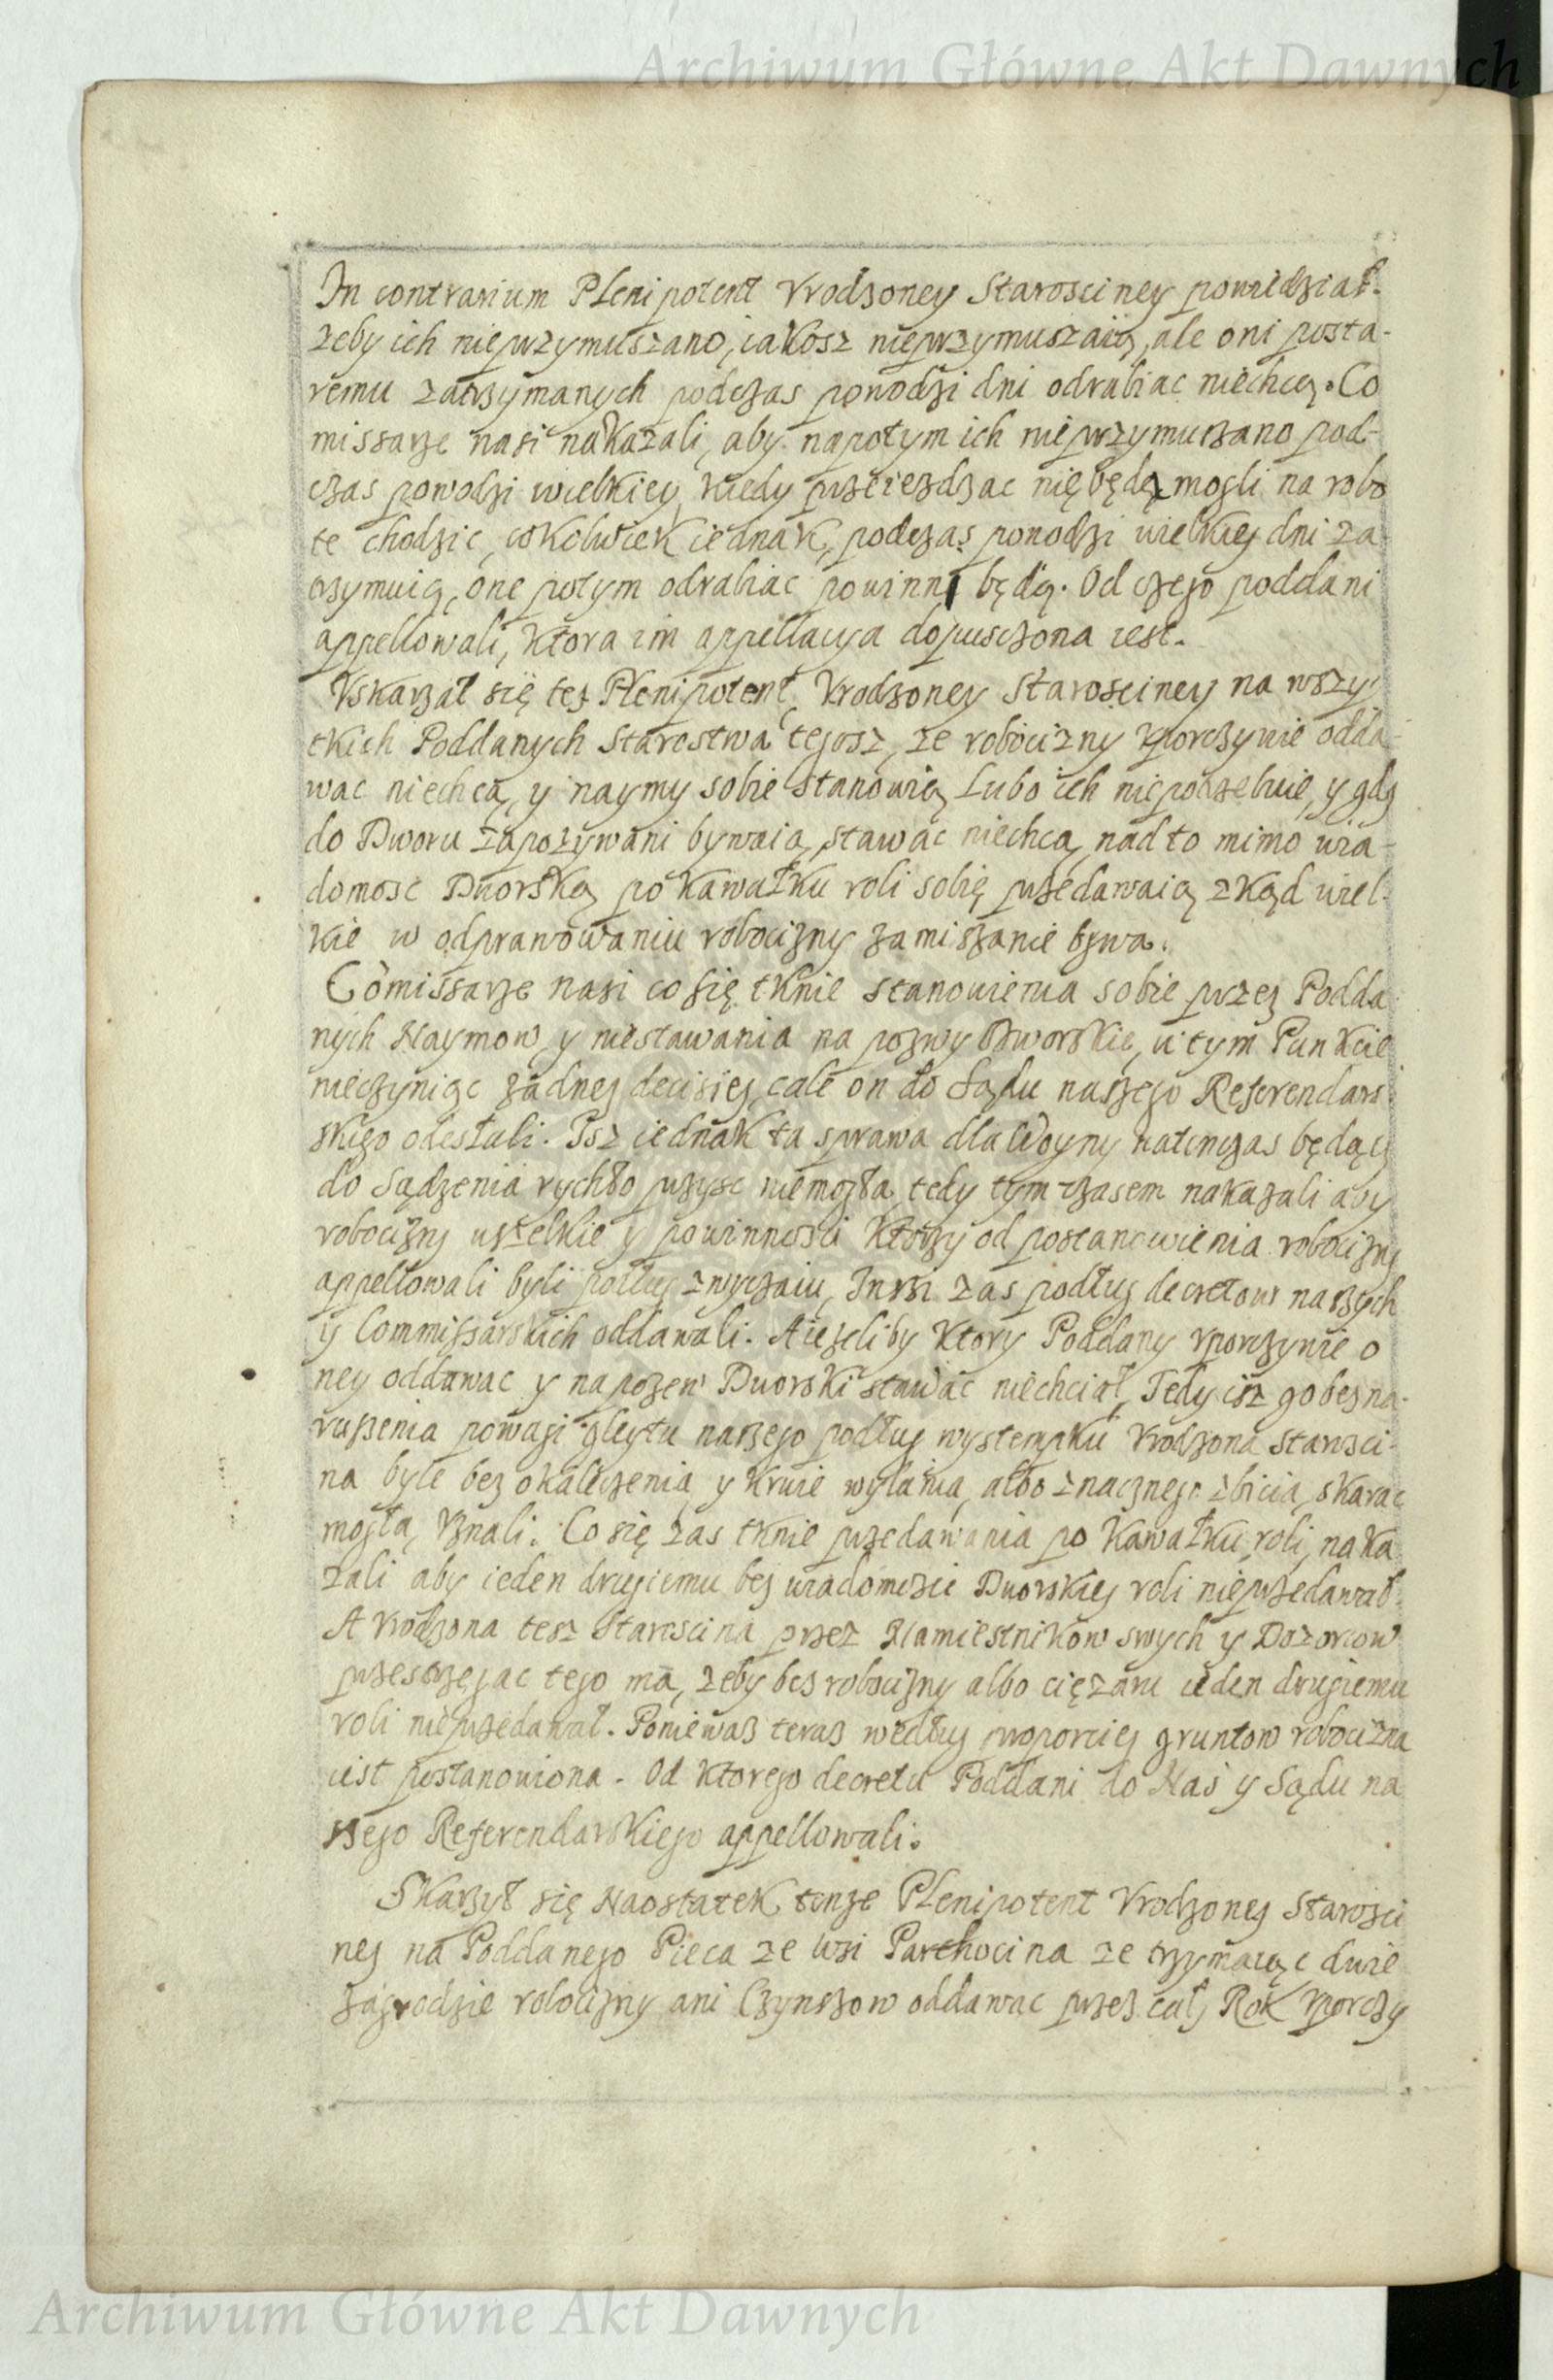 Archiwum Główne Akt Dawnych
In contrarium Plenipotent Vrodzoney Starosciney powiedział.
zeby ich nieprzymuszano, iakosz nieprzymuszaią, ale oni posta-
remu zatrzymanych podczas powodzi dni odrabiac niechcą. Co
missarze nasi nakazali, aby napotym ich nieprzymuszano pod-
czas powodzi wielkiey, kiedy przeiezdzac niebędą mogli na robo
te chodzic, cokolwiek iednak, podczas powodzi wielkiey dni za
trzymuią, one potym odrabiac powinni będą. Od czego poddani
appellowali, ktora im appellacya dopusczona iest.
Vskarzał się tez Plenipotent, Vrodzoney Starosciney na wszy
tkich Poddanych Starostwa tegosz, ze robocizny vporczywie odda-
wac niechcą, y naymy sobie stanowią Lubo ich niepotrzebuie, y gdy
do Dworu zapozywani bywaią, stawac niechcą, nad to mimo wia-
domosc Dworską po kawałku roli sobie przedawaią zkąd wiel-
kie w odprawowaniu robocizny zamiszanie bywa.
Comissarze nasi co się tknie stanowienia sobie przez Podda
nych Naymow, y niestawania na pozwy Dworskie, w tym Punkcie
nieczyniąc zadney decisiey, cale on do Sądu naszego Referendars
skiego odesłali. Isz iednak ta sprawa dla Woyny natenczas będący
do Sądzenia rychło przysc niemogła, tedy tym czasem nakazali aby
robocizny wszelkie y powinnosci ktorzy od postanowienia robocizny
appellowali byli podług zwyczaiu, Inszi zas podług decretow naszych
y Commissarskich oddawali. A iezeliby ktory Poddany vporczywie o
ney oddawac y na pozew Dworski stawac niechciał, Tedy isz go bez na-
ruszenia powagi gleytu naszego podług wystempku Vrodzona Starosci-
na byle bez okaleczenia y krwie wylania, albo znacznego zbicia, skarac
mogła, Vznali. Co się zas tknie przedawania po kawałku roli, naka
zali aby ieden drugiemu bez wiadomosci Dworskiey roli nieprzedawał.
A Vrodzona tesz Staroscina przez Namiestnikow swych y Dozorcow
przestrzegac tego ma, zeby bes robocizny albo cięzaru ieden drugiemu
roli nieprzedawał. Poniewasz teraz według proporciey gruntow robocizna
iest postanowiona. Od ktorego decretu Poddani do Nas y Sądu na
szego Referendarskiego appellowali.
Skarzył się Naostatek tenze Plenipotent Vrodzoney Starosci
ney na Poddanego Pieca ze wsi Parchocina ze trzymaiąc dwie
zagrodzie robocizny ani Czynszow oddawac przez cały Rok vporczy
Archiwum Główne Akt Dawnych